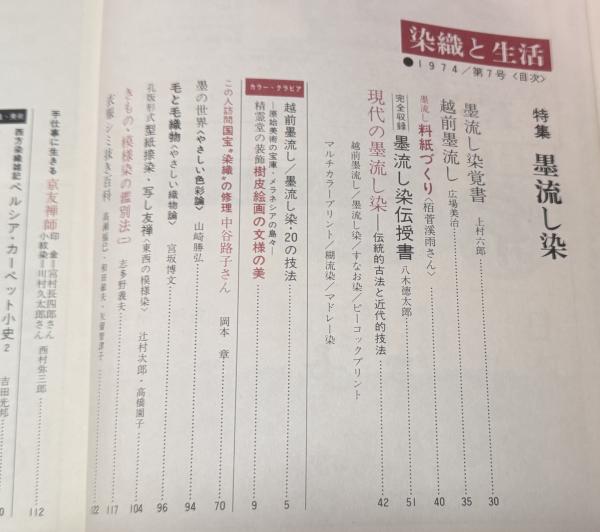 染織と生活
●1974/第7号〈目次〉
特集 墨流し染
墨流し染覚書 上村六郎 30
越前墨流し 広場美治 35
墨流し 料紙づくり〈栢菅溪雨さん〉 40
●完全収録 墨流し染伝授書 八木徳太郎 51
現代の墨流し染―伝統的古法と近代的技法 42
越前墨流し/墨流し染/すなお染/ピーコックプリント
マルチカラープリント/糊流染/マドレー染
カラー・グラビア
越前墨流し/墨流し染・20の技法 5
―原始美術の宝庫・メラネシアの島々―
精霊堂の装飾 樹皮絵画の文様の美 9
この人訪問 国宝“染織”の修理 中谷路子さん 岡本 章 70
墨の世界〈やさしい色彩論〉 山崎勝弘 94
毛と毛織物〈やさしい織物論〉 宮坂博文 96
孔版形式 型紙捺染・写し友禅〈東西の模様染〉 辻村次郎・高橋園子 104
きもの・模様染の鑑別法(二) 志多野義夫 117
シミ抜き百科 122
手仕事に生きる 京友禅師 印金―宮村長四郎さん 小紋染―川村久太郎さん 西村弥三郎 112
西方染織雑記 ペルシア・カーペット小史 2 吉田光邦